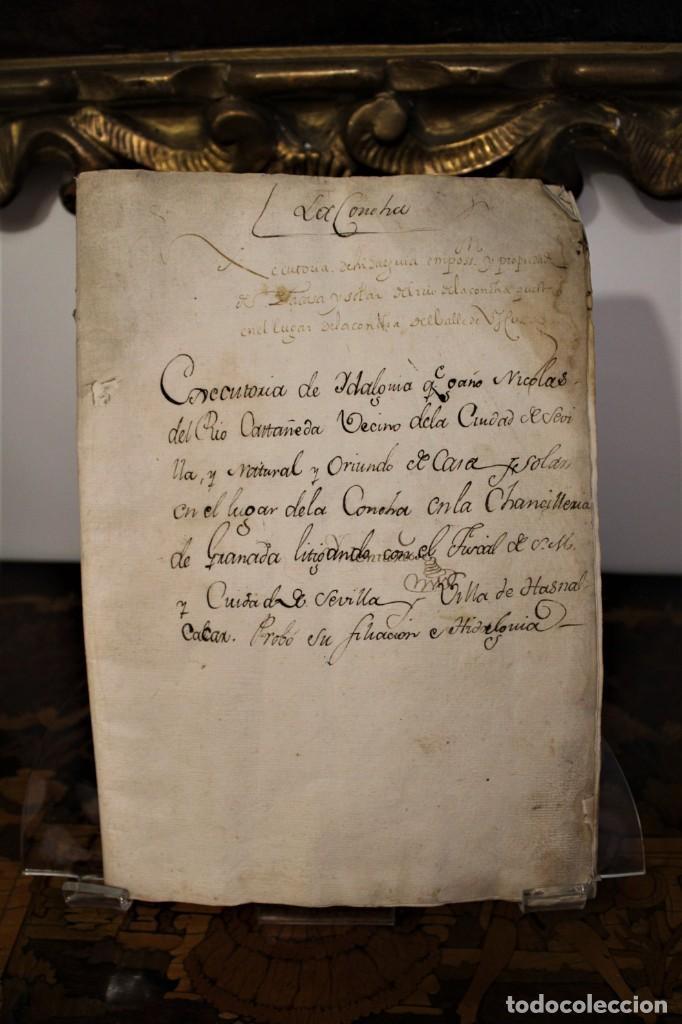 La Concha
ecutoria de Hidalguia em poss.n y propiedad
de Casa y solar del rio de la concha que
en el lugar de la concha del Valle de
Executoria de Idalguia q.e gaño Nicolas
del Rio Castañeda Vecino dela Ciudad de Sevi
lla, y Natural y Oriundo de Casa y solar
en el lugar dela Concha en la Chancilleria
de Granada litigando con el Fiscal de S.M.
y Cuidad de Sevilla y Villa de Hasnal
cacar. Probó su filiacion e Hidalguia
15
todocoleccion